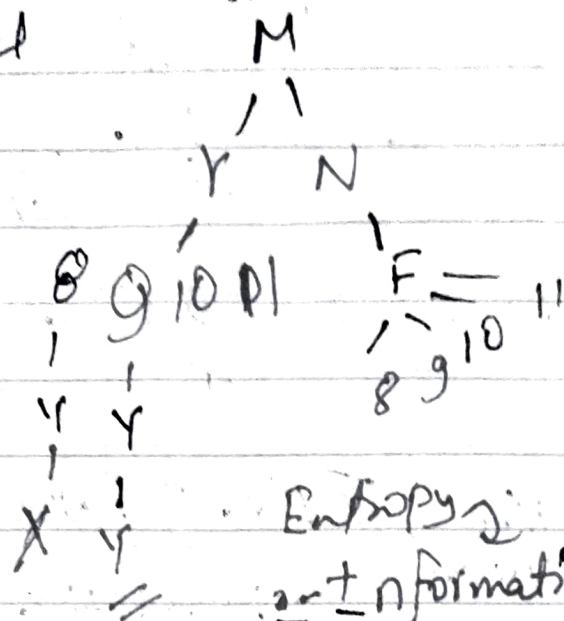 M
Y N
8 9 10 11 F
11
8 9 10
Y Y
X Y
Entropy
Informati